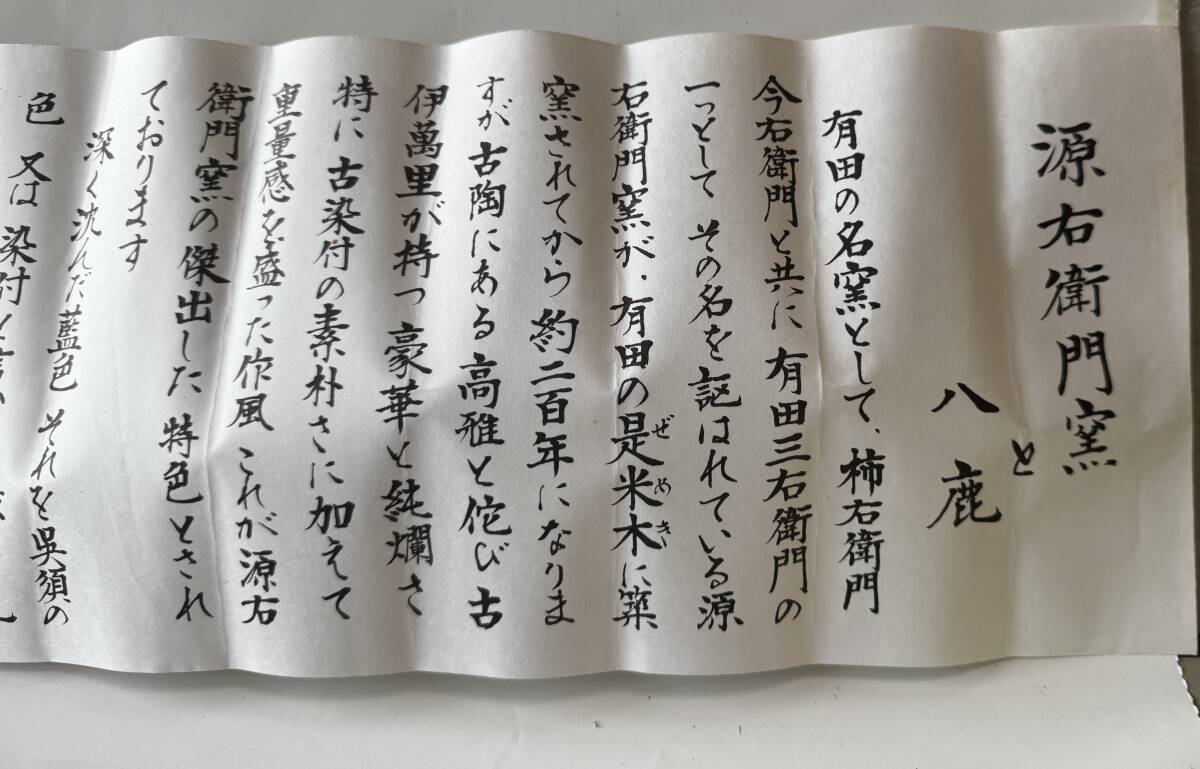 源右衛門窯
と
八鹿
有田の名窯として、柿右衛門
今右衛門と共に 有田三右衛門の
一っとして その名を謳はれている源
右衛門窯が、有田の是米木に築
ぜめき
窯されてから 約二百年になりま
すが 古陶にある高雅と侘び 古
伊萬里が持つ豪華と純爛さ
特に 古染付の素朴さに加えて
重量感を盛った作風 これが源右
衛門窯の傑出した 特色とされ
ております
深く沈んだ藍色 それを呉須の
色 又は 染付と言